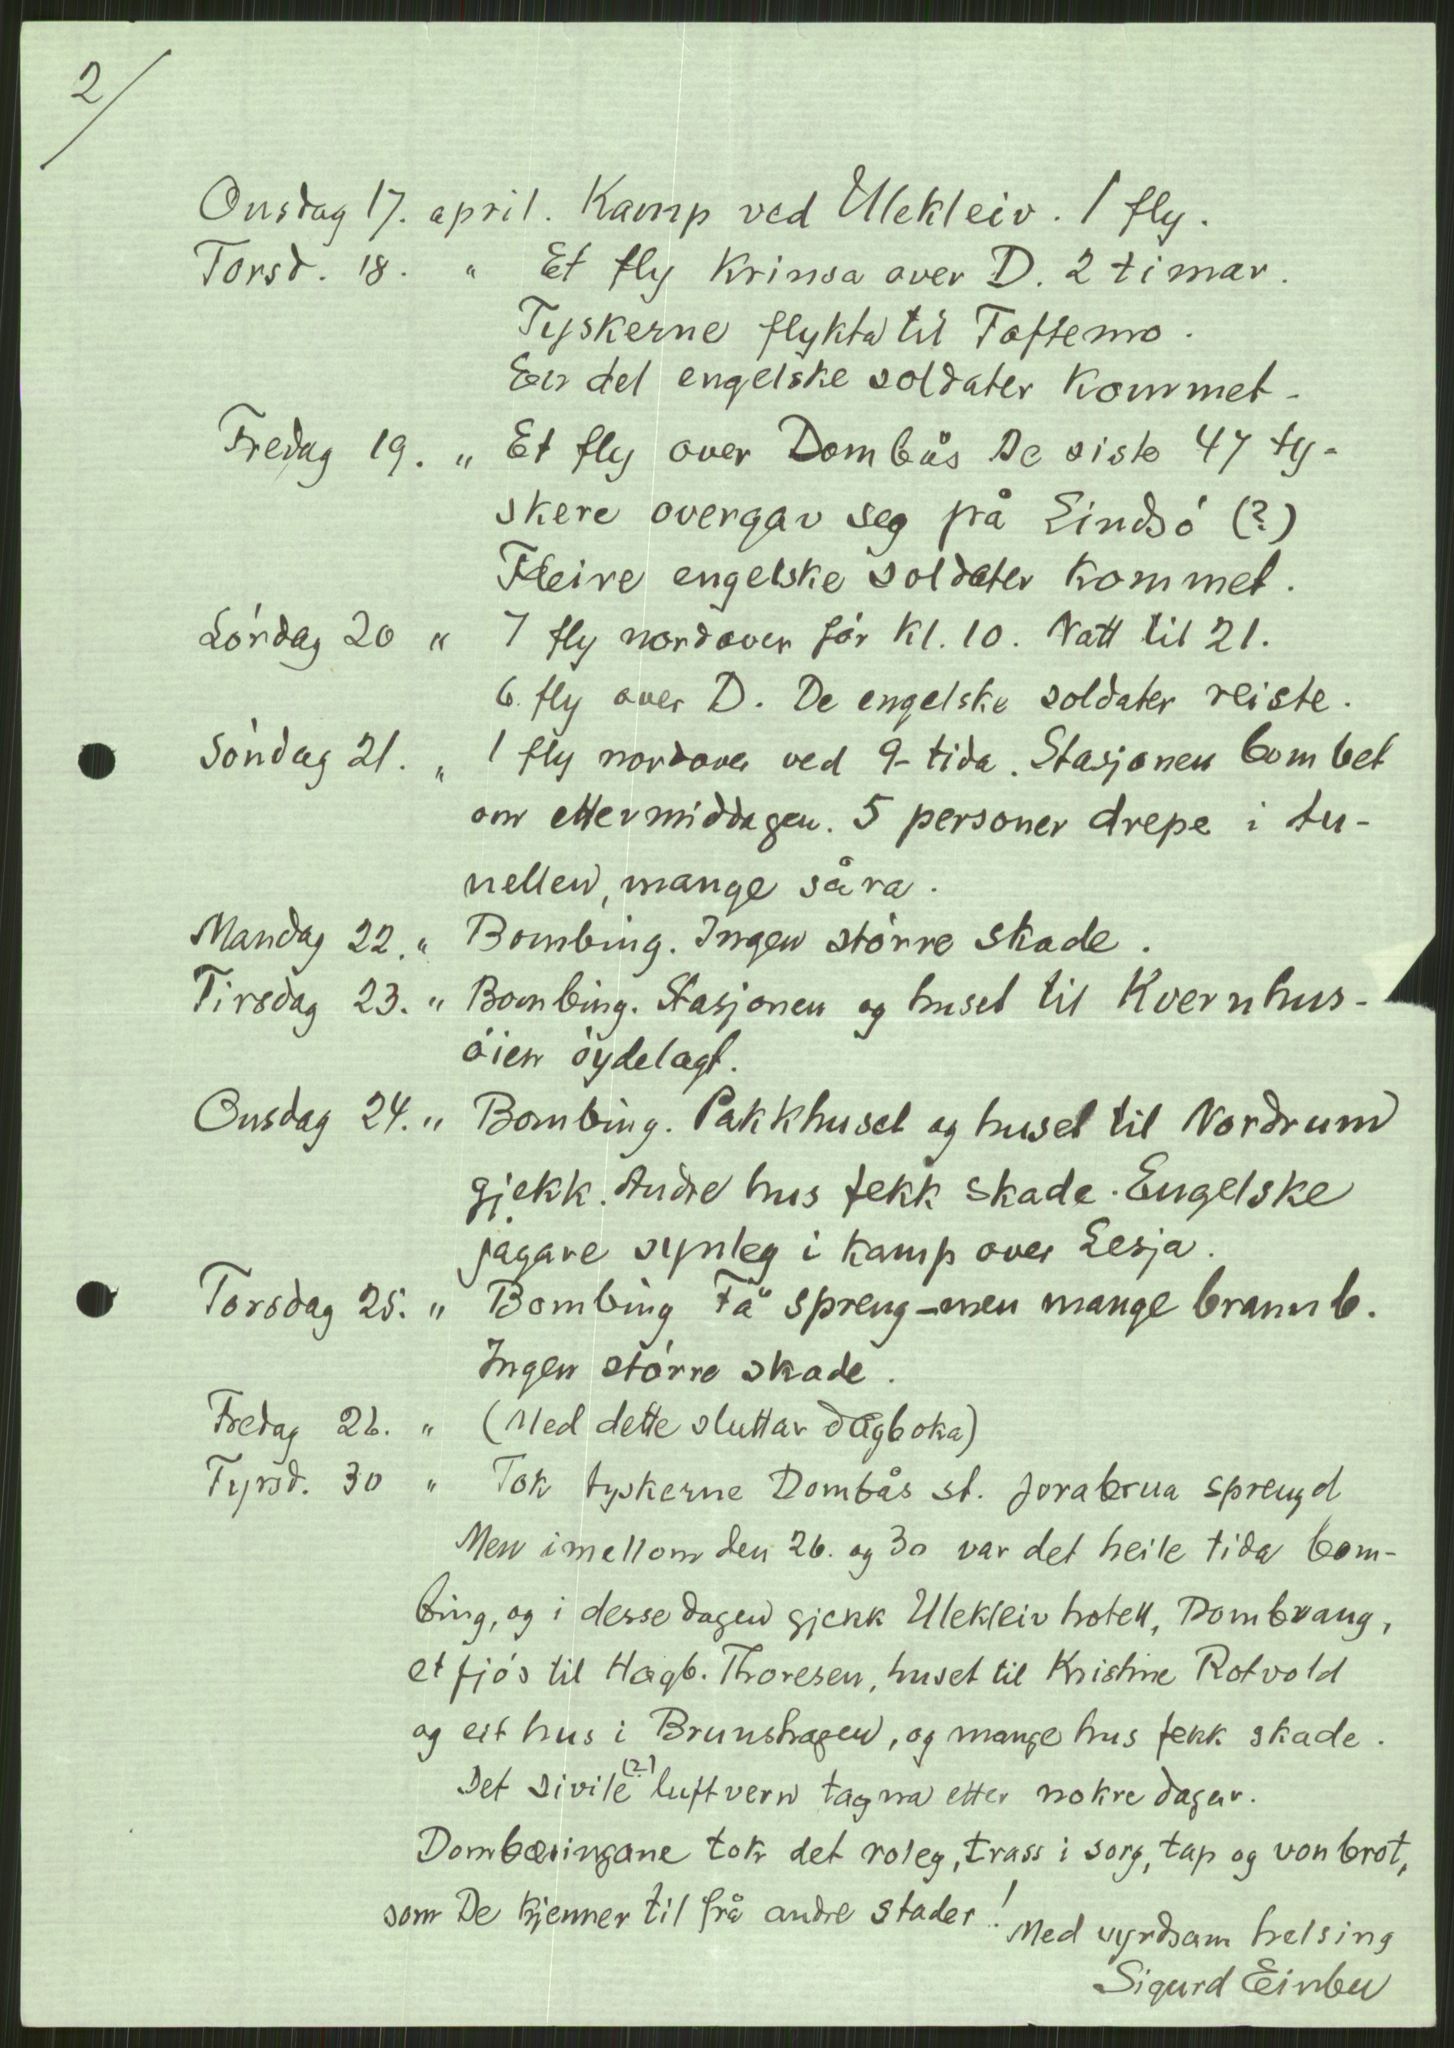 2/
Onsdag 17. april. Kamp ved Ulekleiv. 1 fly.
Torsd. 18. " Et fly krinsa over D. 2 timar.
Tyskerne flykta til Toftemo.
En del engelske soldater kommet.
Fredag 19. " Et fly over Dombås De siste 47 ty-
skere overgav seg på Lindsó (?)
Fleire engelske soldater kommet.
Lórdag 20 " 7 fly nordover fór kl. 10. Natt til 21.
6 fly over D. De engelske soldater reiste.
Sóndag 21. " 1 fly nordover ved 9-tida. Stasjonen bombet
om ettermiddagen. 5 personer drepe i tu-
nellen, mange såra.
Mandag 22. " Bombing. Ingen stórre skade.
Tirsdag 23. " Bombing. Stasjonen og huset til Kvernhus-
óien óydelagt.
Onsdag 24. " Bombing. Pakkhuset og huset til Nordrum
gjekk. Andre hus fekk skade. Engelske
jagare synleg i kamp over Lesja.
Torsdag 25. " Bombing Få spreng-men mange brannb.
Ingen stórre skade.
Fredag 26. " (Med dette sluttar dagboka)
Tyrsd. 30 " Tok tyskerne Dombås st. Jorabrua sprengd
Men imellom den 26. og 30 var det heile tida bom-
bing, og i desse dagen gjekk Ulekleiv hotell, Dombvang,
et fjós til Hagb. Thoresen, huset til Kristine Rotvold
og eit hus i Brunshagen, og mange hus fekk skade.
Det sivile (?) luftvern tagna etter nokre dagar.
Dombæringane tok det roleg, trass i sorg, tap og vonbrot,
som De kjenner til frå andre stader!
Med vyrdsam helsing
Sigurd Einbu